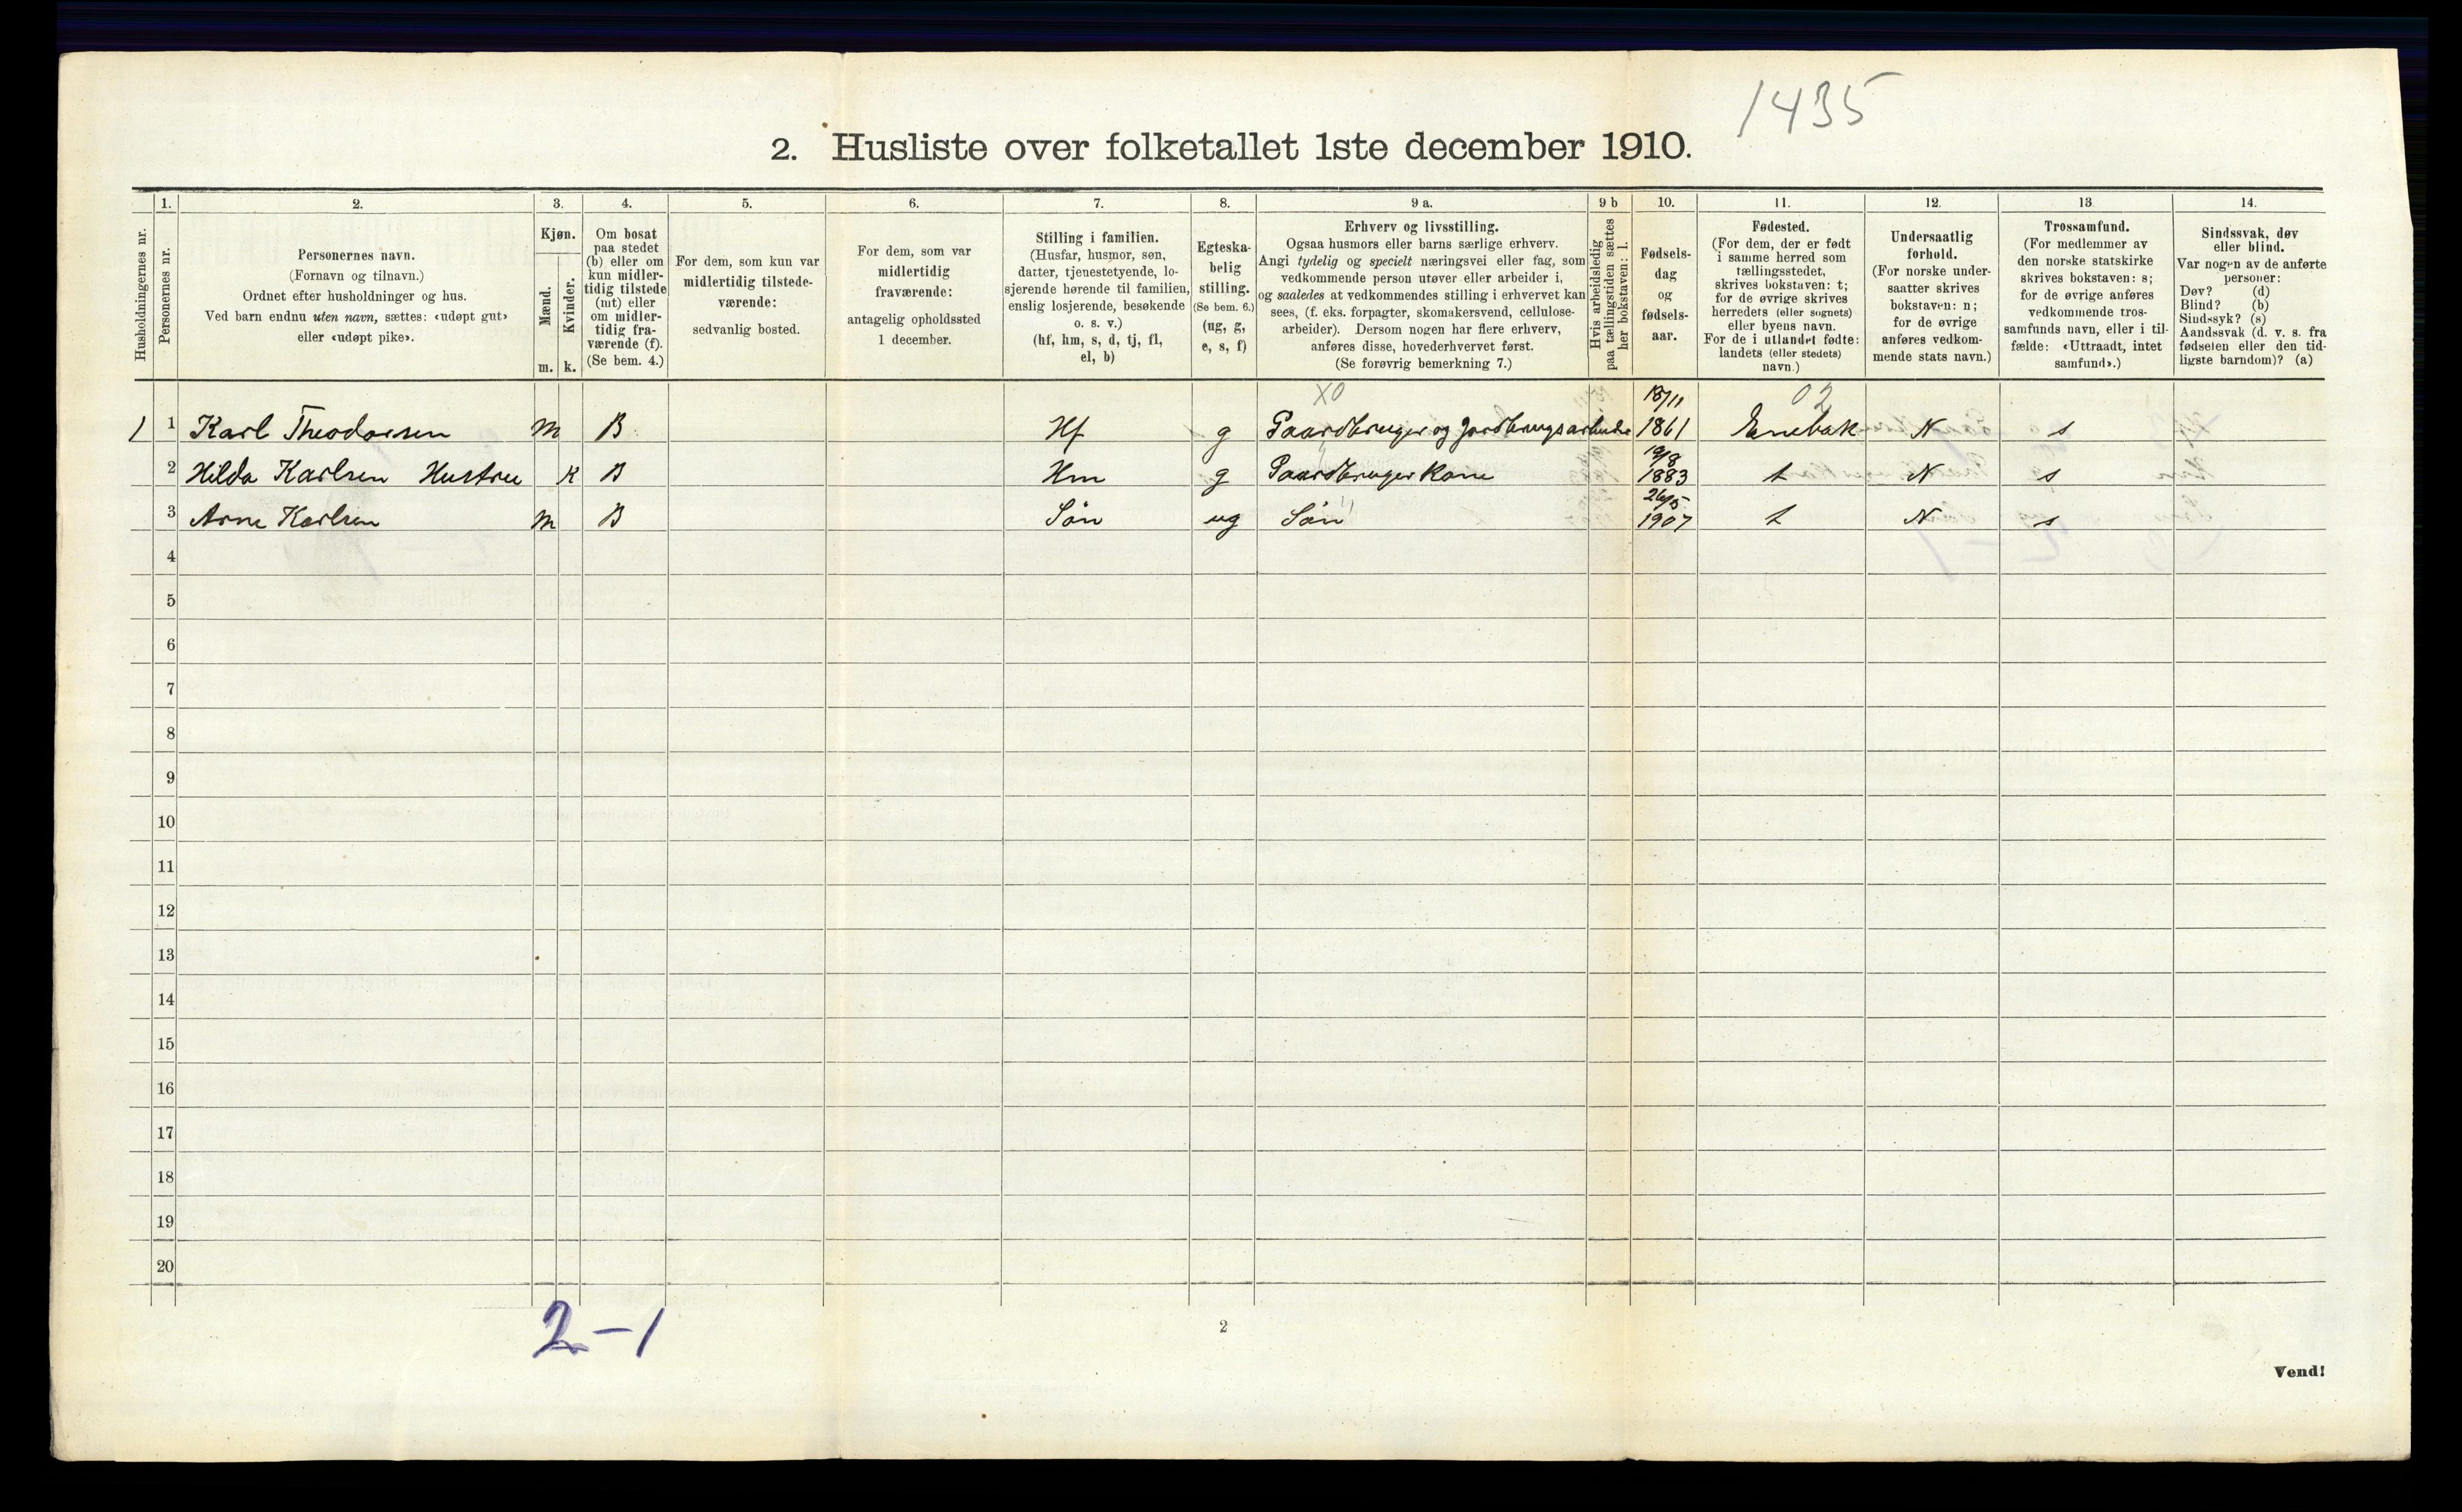 1435
2. Husliste over folketallet 1ste december 1910.
Husholdningernes nr.
1.
Personernes nr.
2.
Personernes navn.
(Fornavn og tilnavn.)
Ordnet efter husholdninger og hus.
Ved barn endnu uten navn, sættes: «udøpt gut»
eller «udøpt pike».
3.
Kjøn.
Mænd.
Kvinder.
m. k.
4.
Om bosat
paa stedet
(b) eller om
kun midler-
tidig tilstede
(mt) eller
om midler-
tidig fra-
værende (f).
(Se bem. 4.)
5.
For dem, som kun var
midlertidig tilstede-
værende:
sedvanlig bosted.
6.
For dem, som var
midlertidig
fraværende:
antagelig opholdssted
1 december.
7.
Stilling i familien.
(Husfar, husmor, søn,
datter, tjenestetyende, lo-
sjerende hørende til familien,
enslig losjerende, besøkende
o. s. v.)
(hf, hm, s, d, tj, fl,
el, b)
8.
Egteska-
belig
stilling.
(Se bem. 6.)
(ug, g,
e, s, f)
9 a.
Erhverv og livsstilling.
Ogsaa husmors eller barns særlige erhverv.
Angi tydelig og specielt næringsvei eller fag, som
vedkommende person utøver eller arbeider i,
og saaledes at vedkommendes stilling i erhvervet kan
sees, (f. eks. forpagter, skomakersvend, cellulose-
arbeider). Dersom nogen har flere erhverv,
anføres disse, hovederhvervet først.
(Se forøvrig bemerkning 7.)
9 b
Hvis arbeidsledig
paa tællingstiden sættes
her bokstaven: l.
10.
Fødsels-
dag
og
fødsels-
aar.
11.
Fødested.
(For dem, der er født
i samme herred som
tællingsstedet,
skrives bokstaven: t;
for de øvrige skrives
herredets (eller sognets)
eller byens navn.
For de i utlandet fødte:
landets (eller stedets)
navn.)
12.
Undersaatlig
forhold.
(For norske under-
saatter skrives
bokstaven: n;
for de øvrige
anføres vedkom-
mende stats navn.)
13
Trossamfund.
(For medlemmer av
den norske statskirke
skrives bokstaven: s;
for de øvrige anføres
vedkommende tros-
samfunds navn, eller i til-
fælde: «Uttraadt, intet
samfund».)
14.
Sindssvak, døv
eller blind.
Var nogen av de anførte
personer:
Døv? (d)
Blind? (b)
Sindssyk? (s)
Aandssvak (d. v. s. fra
fødselen eller den tid-
ligste barndom)? (a)
X0 18/11 02
1 1 Karl Theodorsen m B Hf g Gaardbruger og Jordbrugsarbeider 1861 Enebak N s
19/8
2 Hilda Karlsen Hustru K B Hm g Gaardbruger Kone 1883 t N s
26/5
3 Arne Karlsen m B Søn ug Søn 1907 t N s
4
5
6
7
8
9
10
11
12
13
14
15
16
17
18
19
20
2-1
2
Vend!